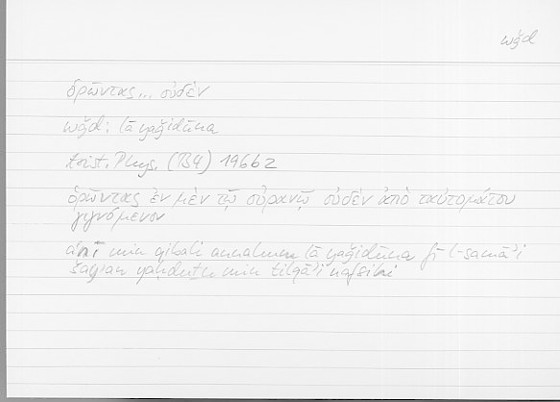 wǧd
ὁρῶντας... οὐδέν
wǧd: lā yaǧidūna
Arist. Phys. (B4) 196b2
ὁρῶντας ἐν μὲν τῷ οὐρανῷ οὐδὲν ἀπὸ ταὐτομάτου
γιγνόμενον
min qibali annahum lā yaǧidūna fī l-samāʾi
šayʾan yaḥduṯu min tilqāʾi nafsihi